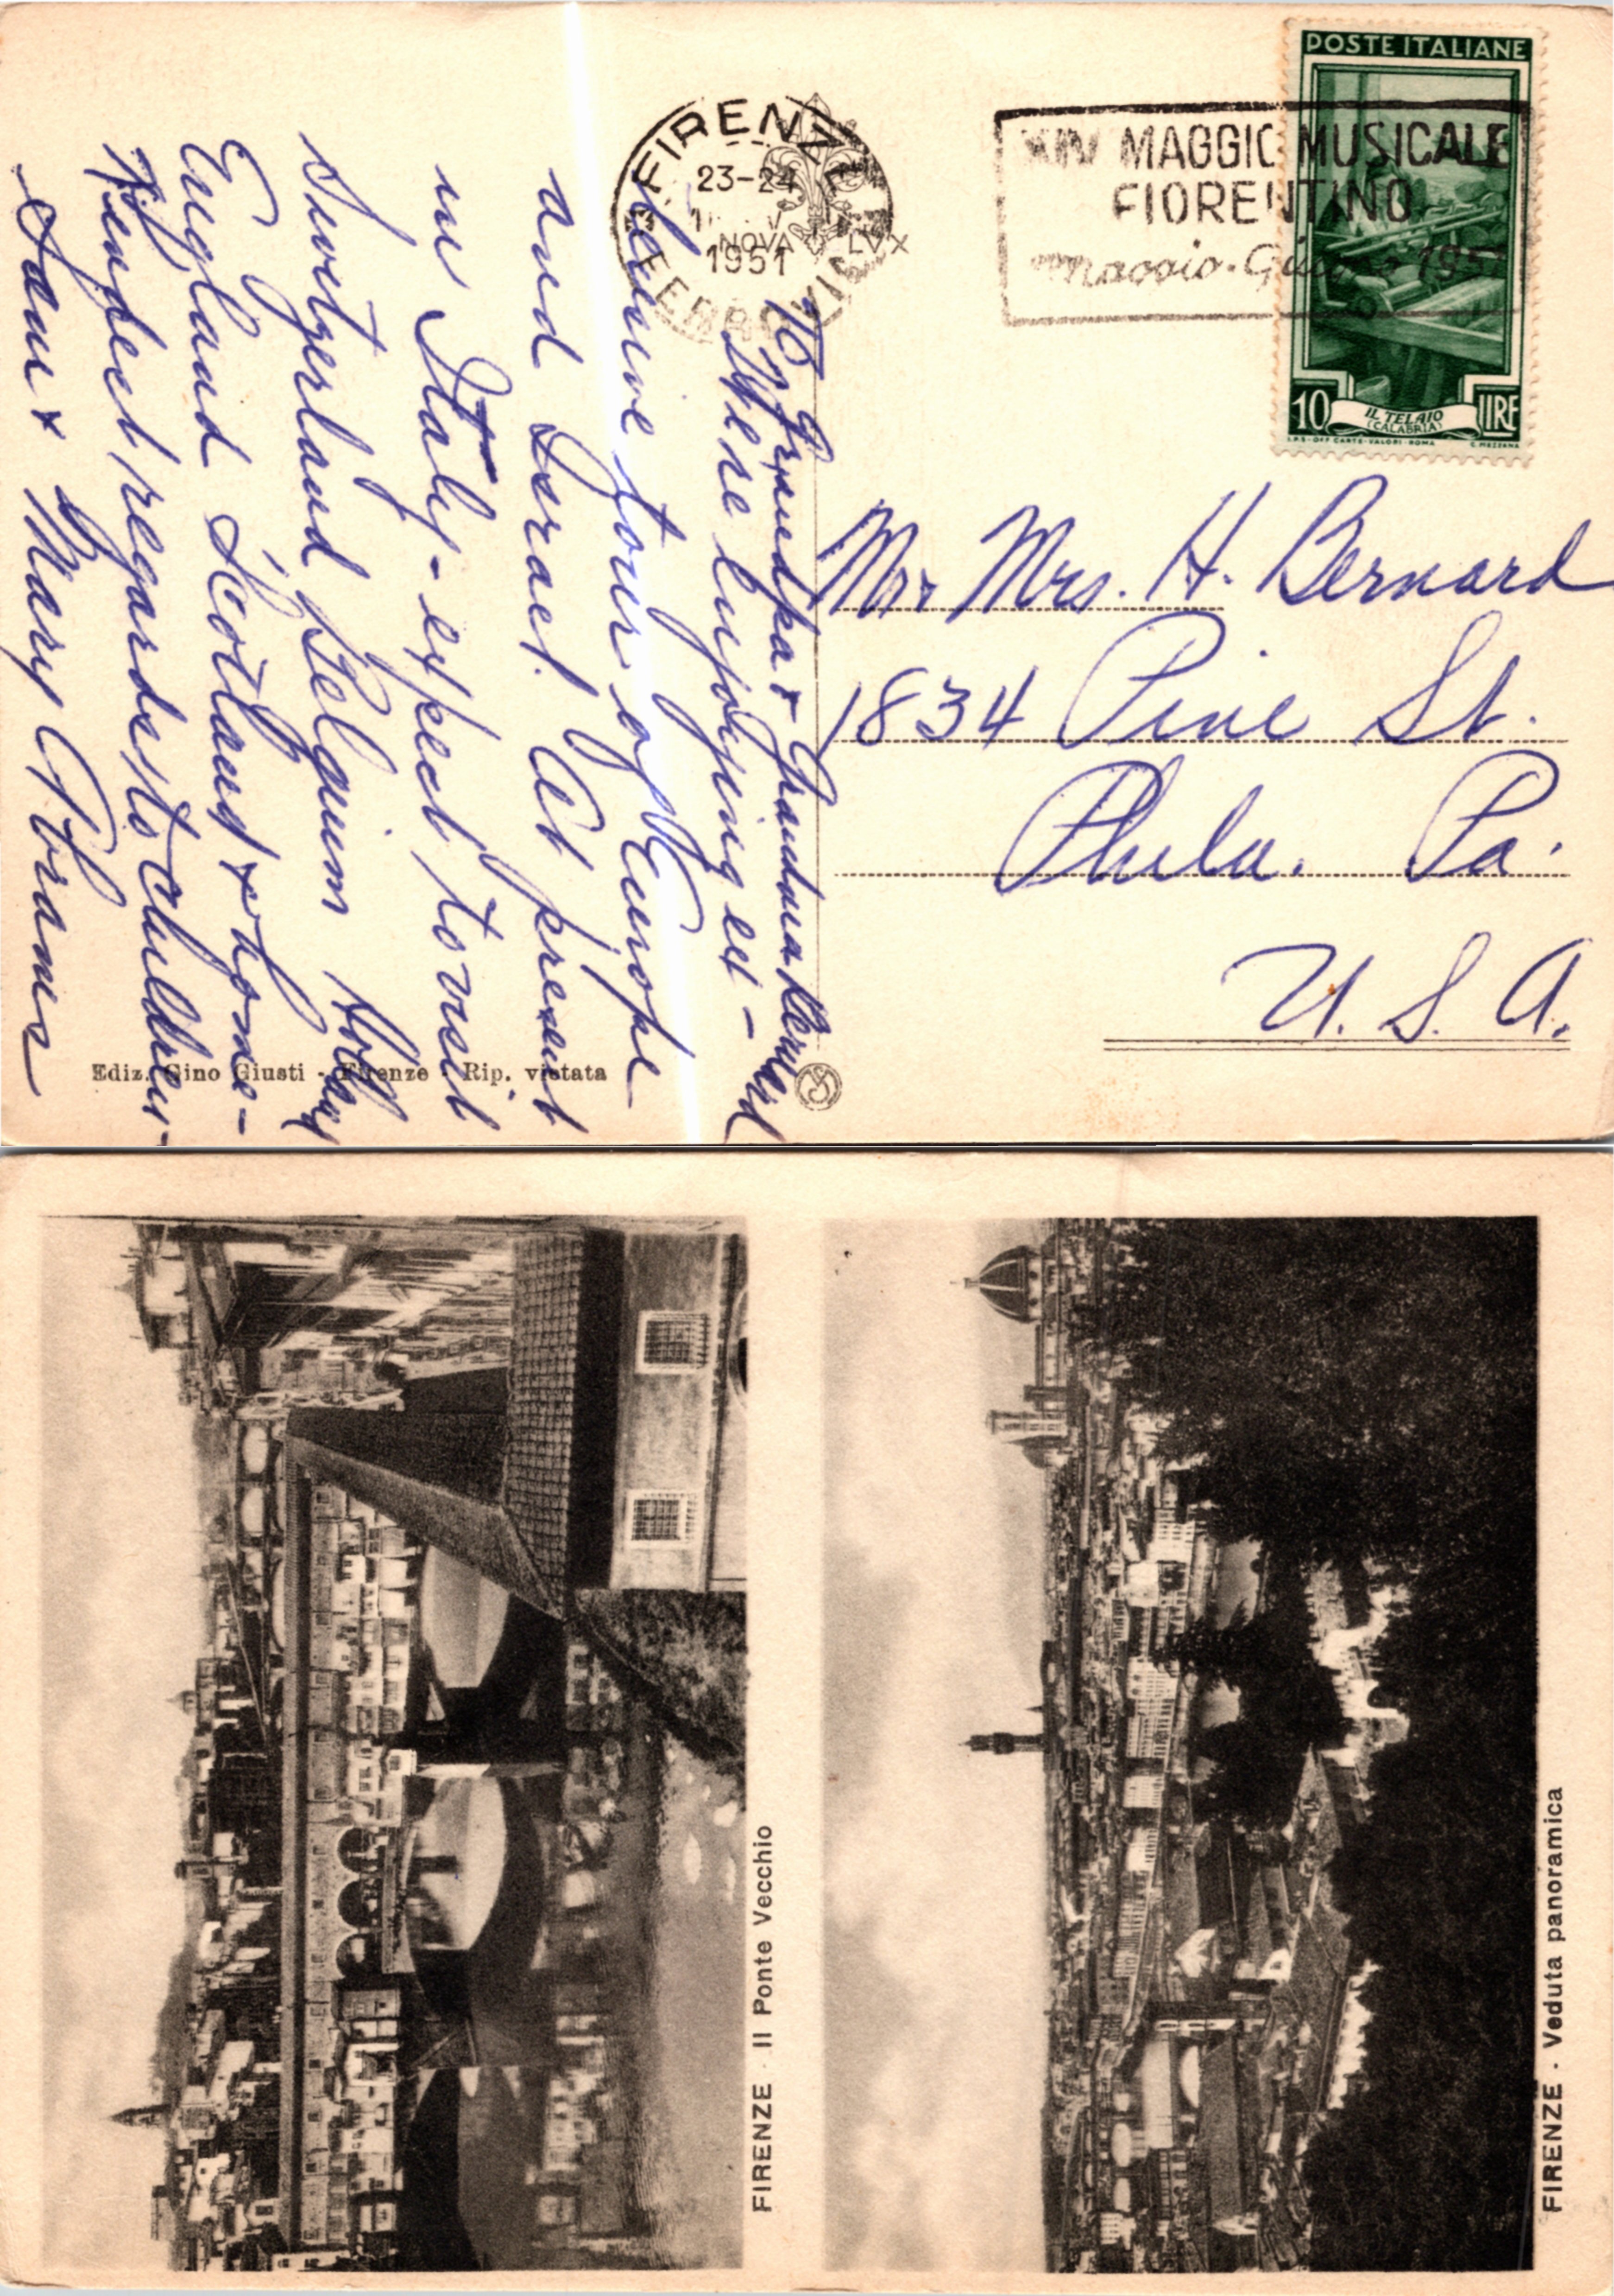 POSTE ITALIANE
10 LIRE
IL TELAIO
(CALABRIA)
I.P.S-OFF CARTE-VALORI-ROMA C. MEZZANA
FIRENZE
23-24
1 V
1951
NOVA LVX
FERROVIA
XIV MAGGIO MUSICALE
FIORENTINO
Maggio-Giugno 1951
Mr Mrs. H. Bernard
1834 Pine St.
Phila. Pa.
U. S. A.
To Grandpa & Grandma
Here enjoying ext-
tensive tour of Europe
and Israel. At present
in Italy - expect to visit
Switzerland Belgium Holland
England Scotland & home-
Kindest regards to children-
Sam & Mary Abrams
Ediz. Gino Giusti - Firenze - Rip. vietata
FIRENZE - Il Ponte Vecchio
FIRENZE - Veduta panoramica